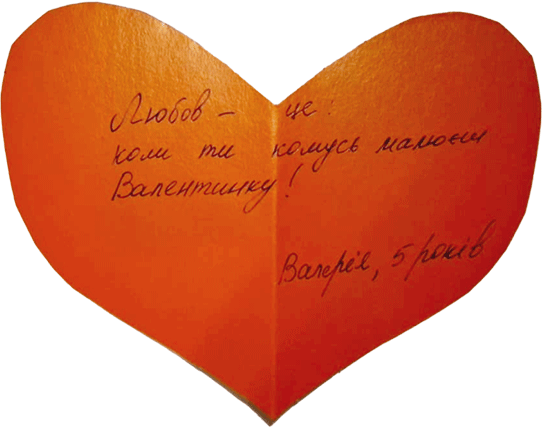 Любов – це:
коли ти комусь малюєш
Валентинку!
Валерія, 5 років